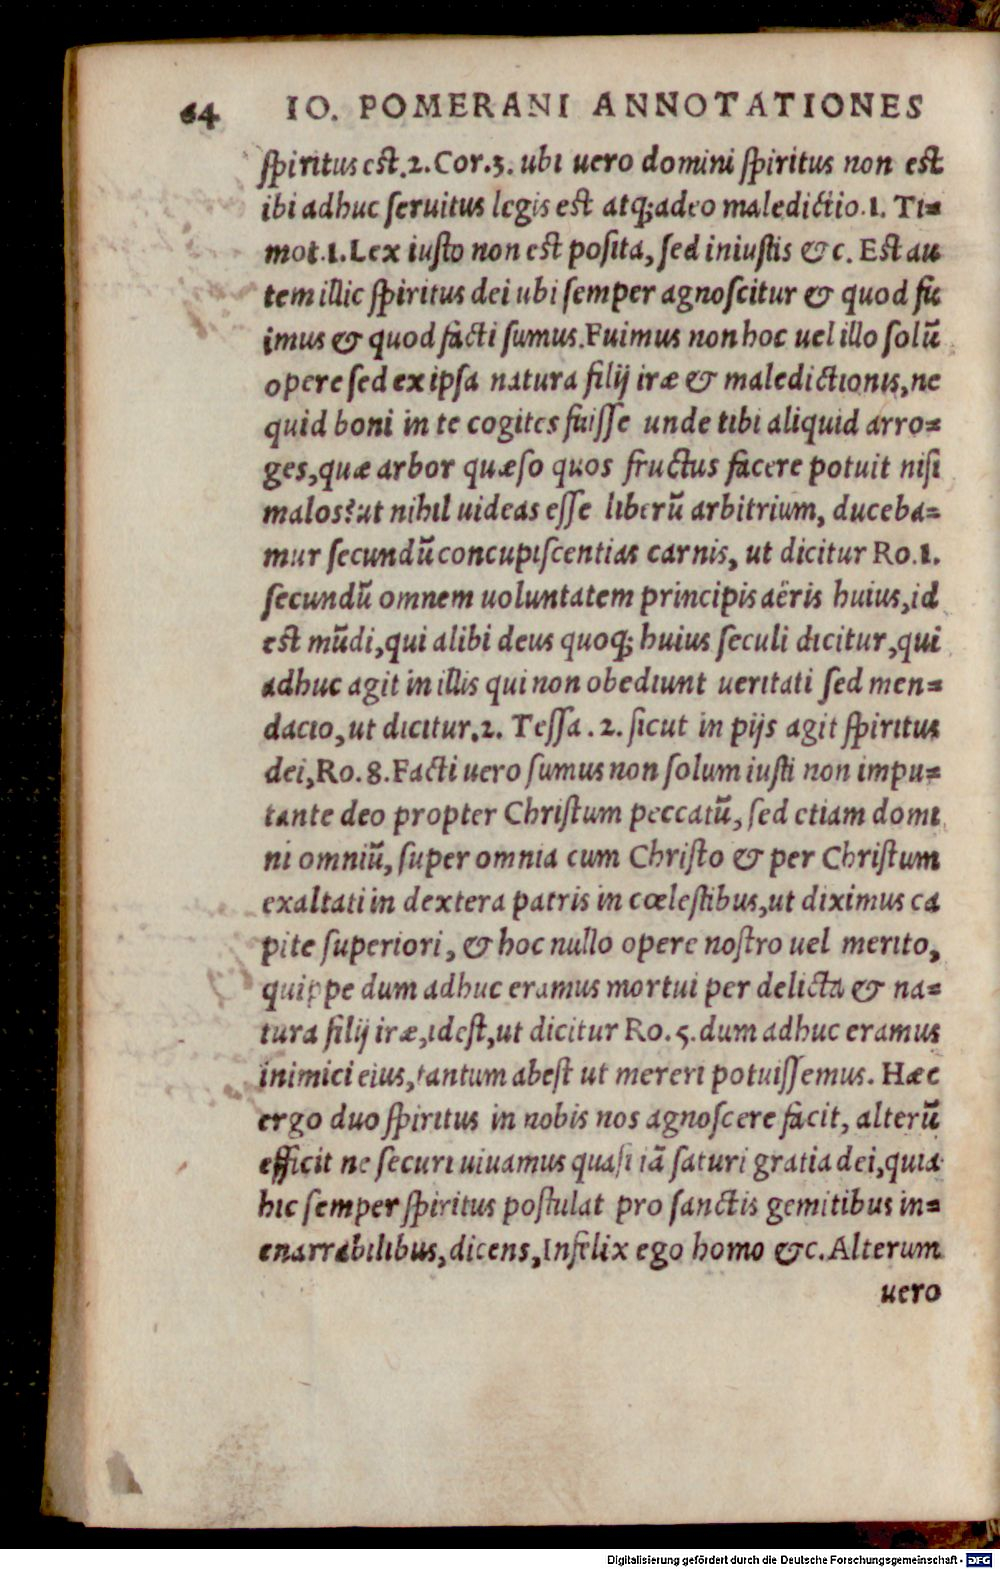 64 IO. POMERANI ANNOTATIONES
spiritus est.2.Cor.3. ubi uero domini spiritus non est
ibi adhuc seruitus legis est atq; adeo maledictio.1. Ti=
mot.1.Lex iusto non est posita, sed iniustis & c. Est au
tem illic spiritus dei ubi semper agnoscitur & quod fu
imus & quod facti sumus.Fuimus non hoc uel illo solū
opere sed ex ipsa natura filij iræ & maledictionis, ne
quid boni in te cogites fuisse unde tibi aliquid arro=
ges, quæ arbor quæso quos fructus facere potuit nisi
malos? ut nihil uideas esse liberū arbitrium, duceba=
mur secundū concupiscentias carnis, ut dicitur Ro.1.
secundū omnem uoluntatem principis aëris huius, id
est mūdi, qui alibi deus quoq; huius seculi dicitur, qui
adhuc agit in illis qui non obediunt ueritati sed men=
dacio, ut dicitur.2. Tessa.2. sicut in pijs agit spiritus
dei, Ro.8.Facti uero sumus non solum iusti non impu=
tante deo propter Christum peccatū, sed etiam domi
ni omniū, super omnia cum Christo & per Christum
exaltati in dextera patris in cœlestibus, ut diximus ca
pite superiori, & hoc nullo opere nostro uel merito,
quippe dum adhuc eramus mortui per delicta & na=
tura filij iræ, idest, ut dicitur Ro.5. dum adhuc eramus
inimici eius, tantum abest ut mereri potuissemus. Hæc
ergo duo spiritus in nobis nos agnoscere facit, alterū
efficit ne securi uiuamus quasi iā saturi gratia dei, quia
hic semper spiritus postulat pro sanctis gemitibus in=
enarrabilibus, dicens, Infelix ego homo &c. Alterum
uero
Digitalisierung gefördert durch die Deutsche Forschungsgemeinschaft - DFG